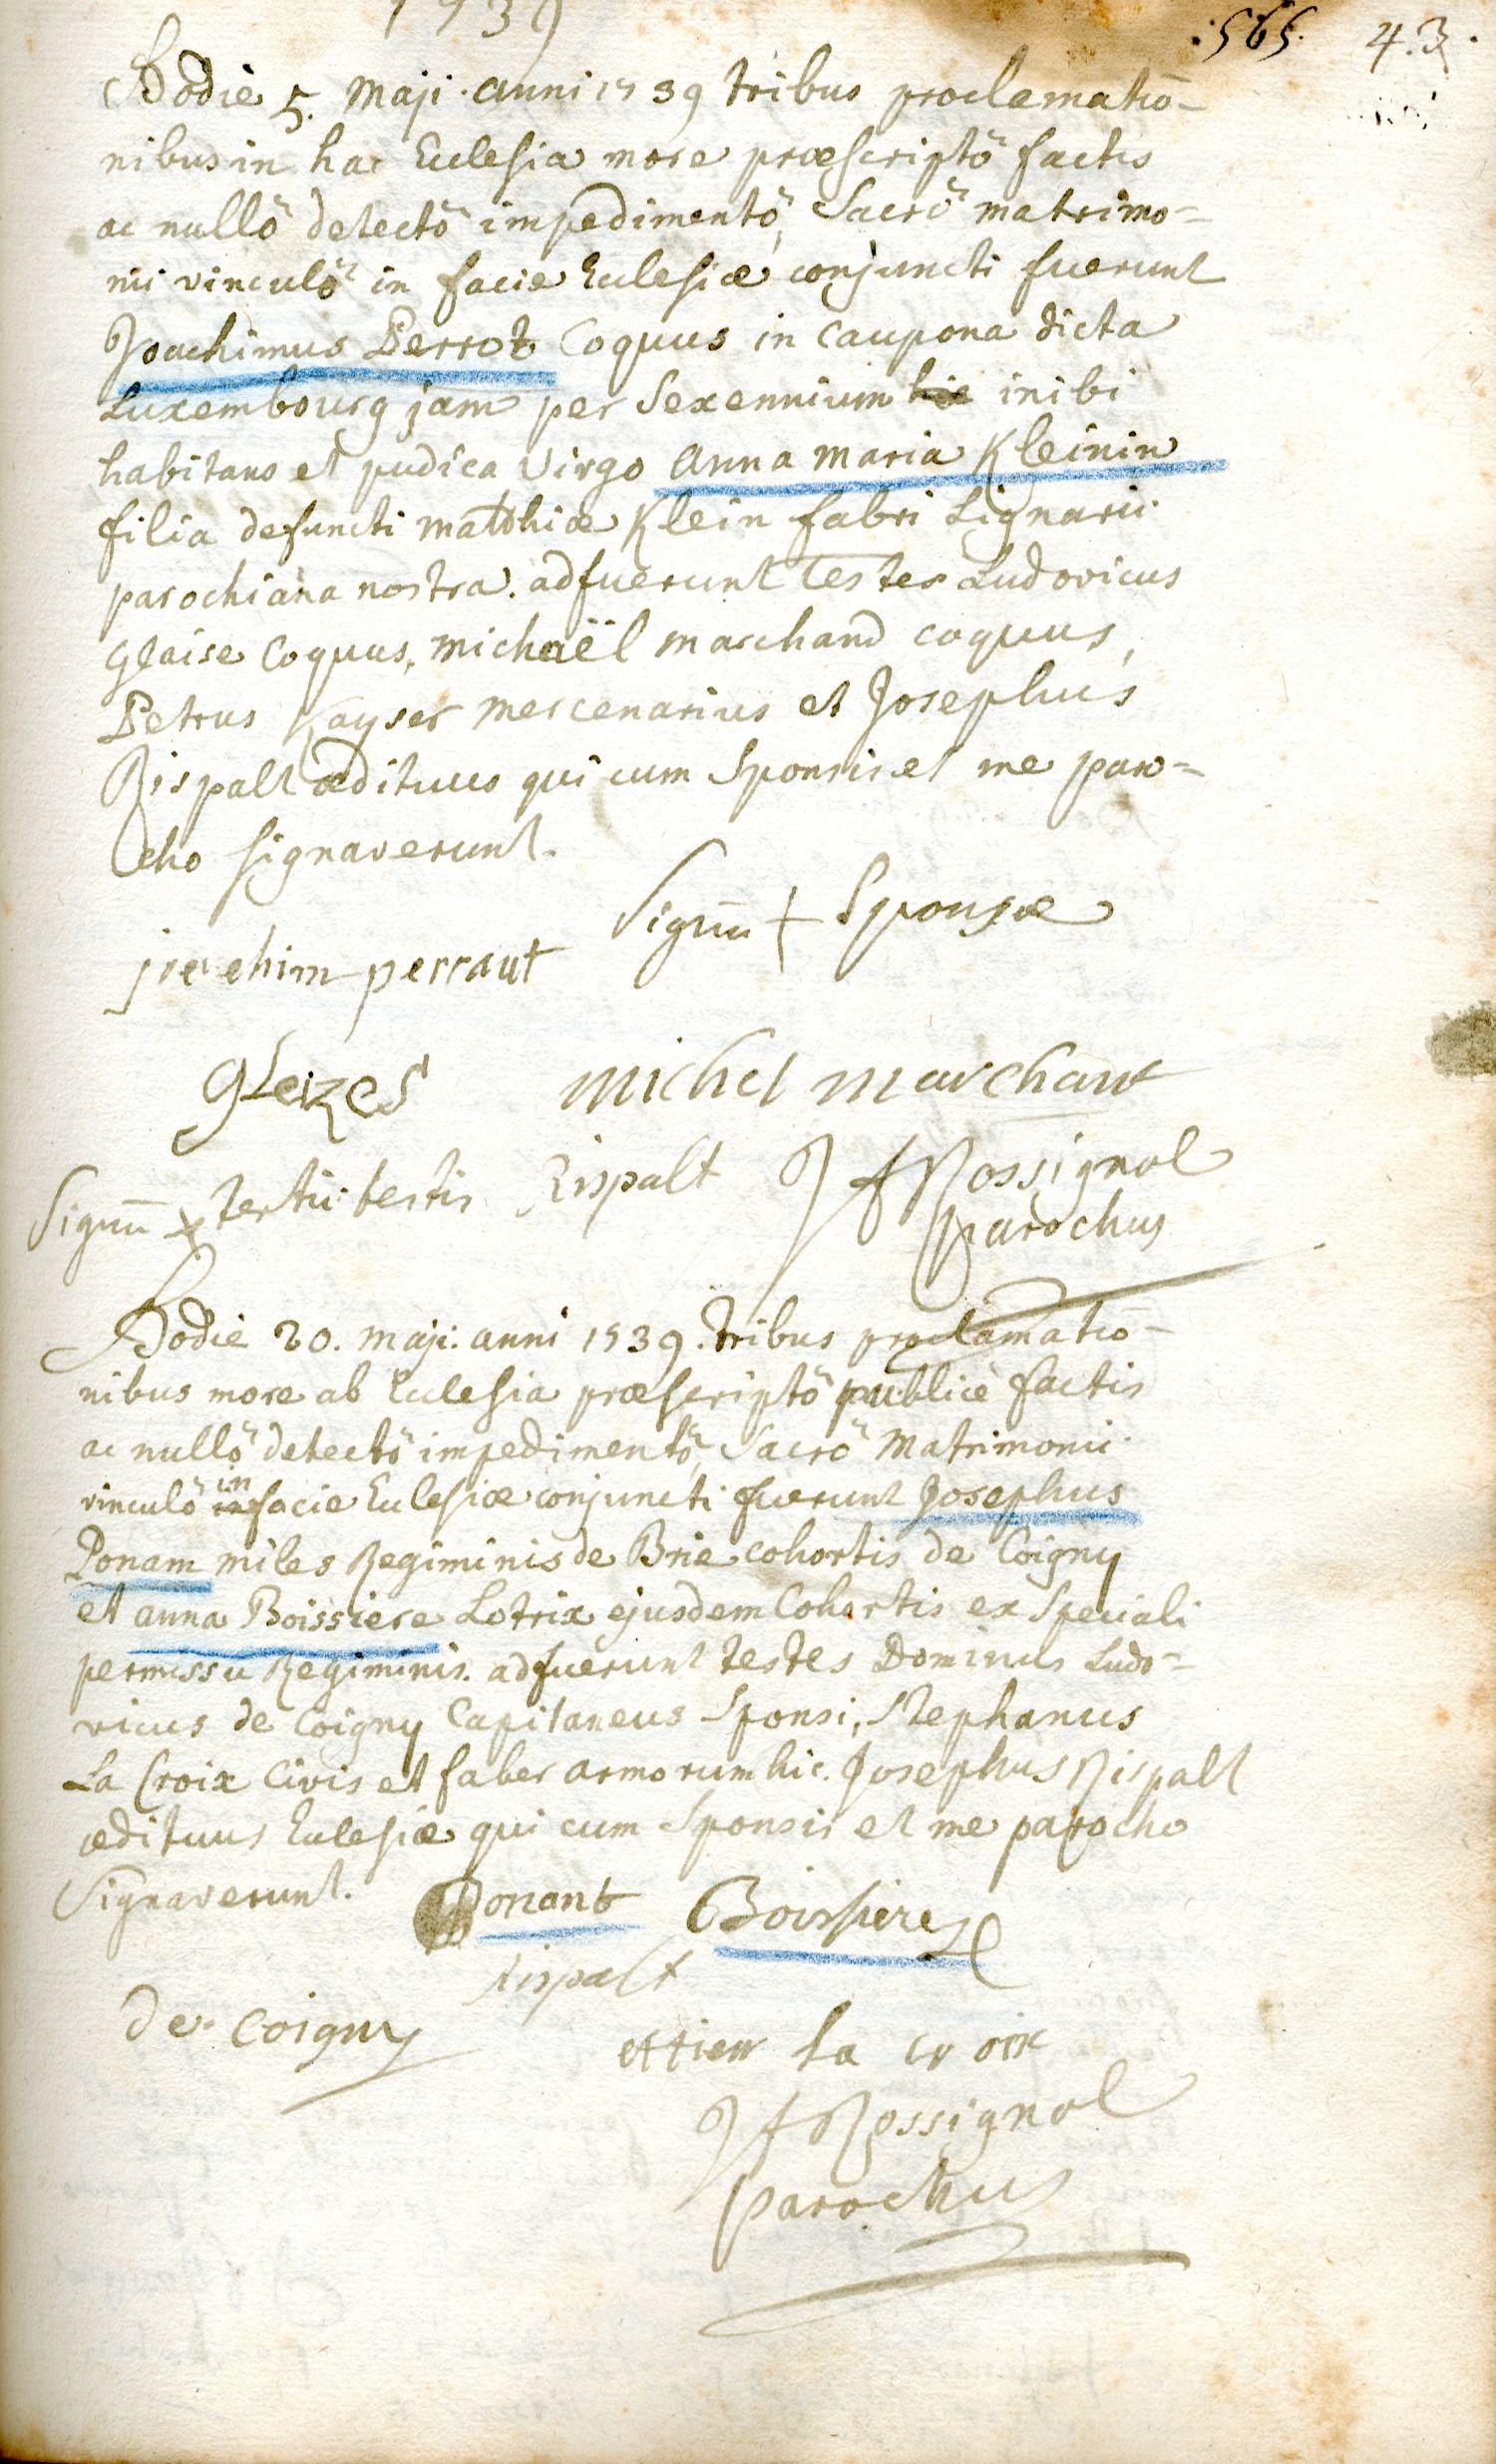 1739
565. 43.
Hodie 5. Maji. anni 1739 tribus proclamatio-
nibus in hac Ecclesia more præscriptô factis
ac nullô detectô impedimentô, Sacrô matrimo-
nii vinculô in facie Ecclesiæ conjuncti fuerunt
Joachimus Perrot Coquus in caupona dicta
Luxembourg jam per Sexennium hic inibi
habitans et pudica virgo anna maria Kleinin
filia defuncti matthiæ Klein fabri Lignarii
parochiana nostra. adfuerunt Testes Ludovicus
Glaise Coquus, michaël marchand coquus,
Petrus Kayser mercenarius et Josephus
Rispalt ædituus qui cum Sponsis et me paro-
cho signaverunt.
Signū + Sponsæ
joechim perraut
GLeizes michel marchant
Signū x tertii testis Rispalt JARossignol
parochus
Hodie 20. Maji. anni 1739. tribus proclamatio-
nibus more ab Ecclesia præscriptô publicè factis
ac nullô detectô impedimentô, Sacrô Matrimonii
vinculô in facie Ecclesiæ conjuncti fuerunt Josephus
Donam miles Regiminis de Brie cohortis de Coigny
et anna Boissiere Lotrix ejusdem Cohortis ex Speciali
permissu Regiminis. adfuerunt testes Dominus Ludo-
vicus de Coigny Capitaneus Sponsi, Stephanus
La Croix Civis et faber armorum hic. Josephus Rispalt
ædituus Ecclesiæ qui cum Sponsis et me parocho
Signaverunt. Donant Boissiere
Rispalt
de Coigny
ettien la croix
JARossignol
parochus